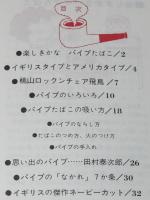 目次
●楽しきかな パイプたばこ/2
●イギリスタイプとアメリカタイプ/4
●桃山ロックンチェア飛鳥/7
●パイプのいろいろ/10
●パイプたばこの吸い方/18
●パイプのならし方
●たばこのつめ方、火のつけ方
●パイプの手入れ
●思い出のパイプ……田村泰次郎/26
●パイプの「なかれ」7か条/30
●イギリスの傑作ネービーカット/32